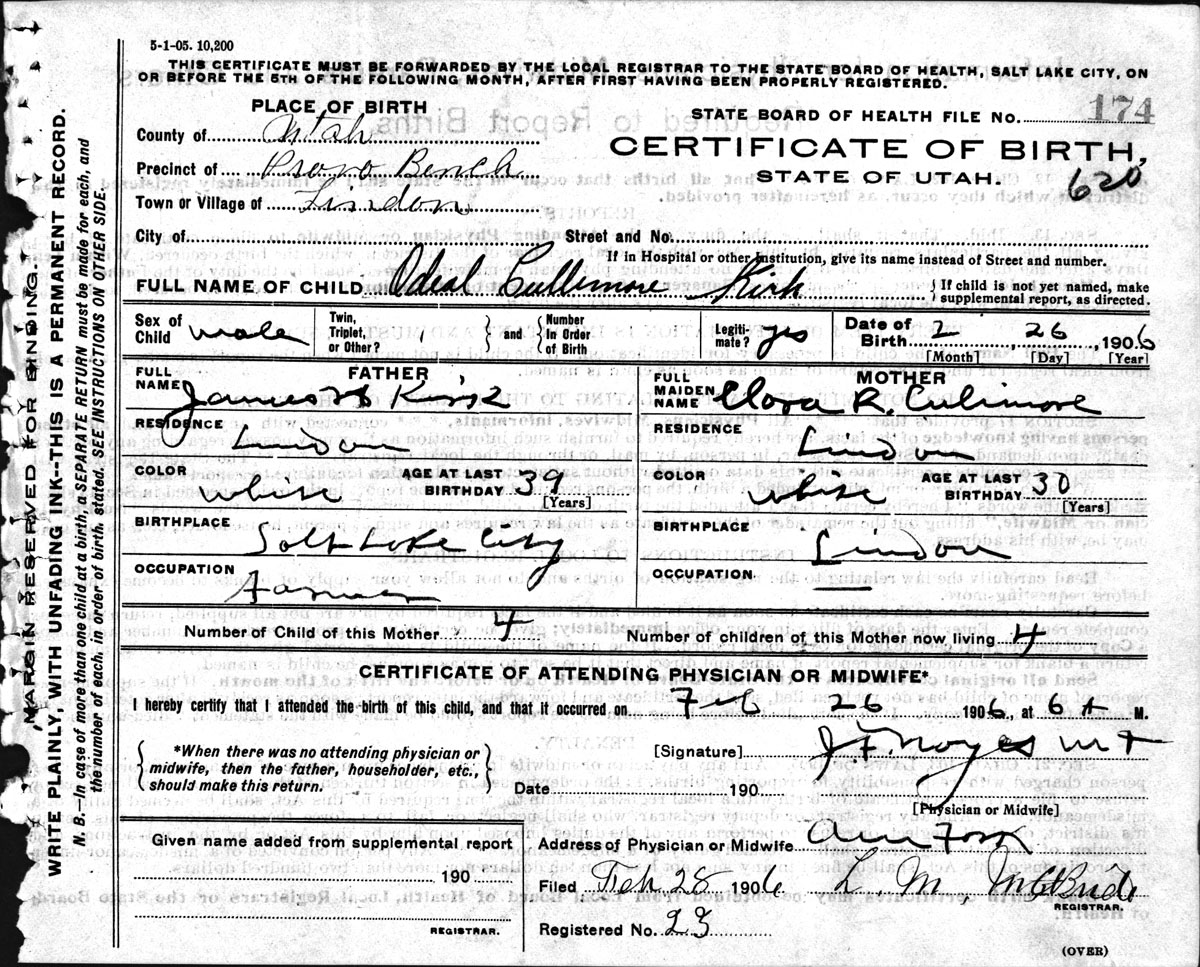 5-1-05. 10,200
THIS CERTIFICATE MUST BE FORWARDED BY THE LOCAL REGISTRAR TO THE STATE BOARD OF HEALTH, SALT LAKE CITY, ON
OR BEFORE THE 5TH OF THE FOLLOWING MONTH, AFTER FIRST HAVING BEEN PROPERLY REGISTERED.
PLACE OF BIRTH
STATE BOARD OF HEALTH FILE NO. 174
County of Utah
CERTIFICATE OF BIRTH,
Precinct of Provo Bench
STATE OF UTAH.
620
Town or Village of Lindon
City of Street and No.
If in Hospital or other Institution, give its name instead of Street and number.
FULL NAME OF CHILD Odeal Cullimore Kirk } If child is not yet named, make supplemental report, as directed.
Sex of Child male Twin, Triplet, or Other? } and { Number In Order of Birth Legiti- mate? yes Date of Birth 2 26, 1906
[Month] [Day] [Year]
FATHER MOTHER
FULL NAME James H Kirk FULL MAIDEN NAME Clora R. Culimore
RESIDENCE Lindon RESIDENCE Lindon
COLOR white AGE AT LAST BIRTHDAY 39 [Years] COLOR white AGE AT LAST BIRTHDAY 30 [Years]
BIRTHPLACE Salt Lake City BIRTHPLACE Lindon
OCCUPATION Farmer OCCUPATION —
Number of Child of this Mother 4 Number of children of this Mother now living 4
CERTIFICATE OF ATTENDING PHYSICIAN OR MIDWIFE*
I hereby certify that I attended the birth of this child, and that it occurred on Feb 26 1906, at 6 A M.
{ *When there was no attending physician or
midwife, then the father, householder, etc.,
should make this return. }
[Signature] J.F. Noyes M D
Date 190
[Physician or Midwife]
Given name added from supplemental report
Address of Physician or Midwife Am Fork
190
Filed Feb 28 1906 L. M. McBride
REGISTRAR.
REGISTRAR.
Registered No. 23
(OVER)
MARGIN RESERVED FOR BINDING.
WRITE PLAINLY, WITH UNFADING INK--THIS IS A PERMANENT RECORD.
N. B.--In case of more than one child at a birth a SEPARATE RETURN must be made for each, and
the number of each, in order of birth, stated. SEE INSTRUCTIONS ON OTHER SIDE.